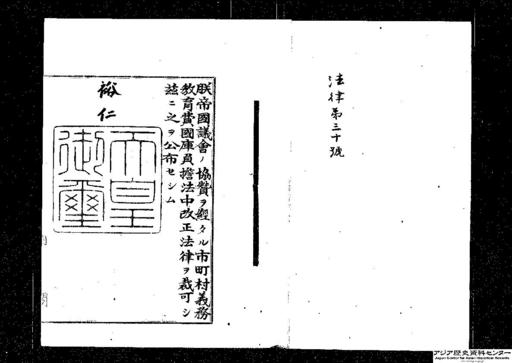 法律第三十號
朕帝國議會ノ協贊ヲ經タル市町村義務
教育費國庫負擔法中改正法律ヲ裁可シ
茲ニ之ヲ公布セシム
裕仁
天皇
御璽
アジア歴史資料センター
Japan Center for Asian Historical Records